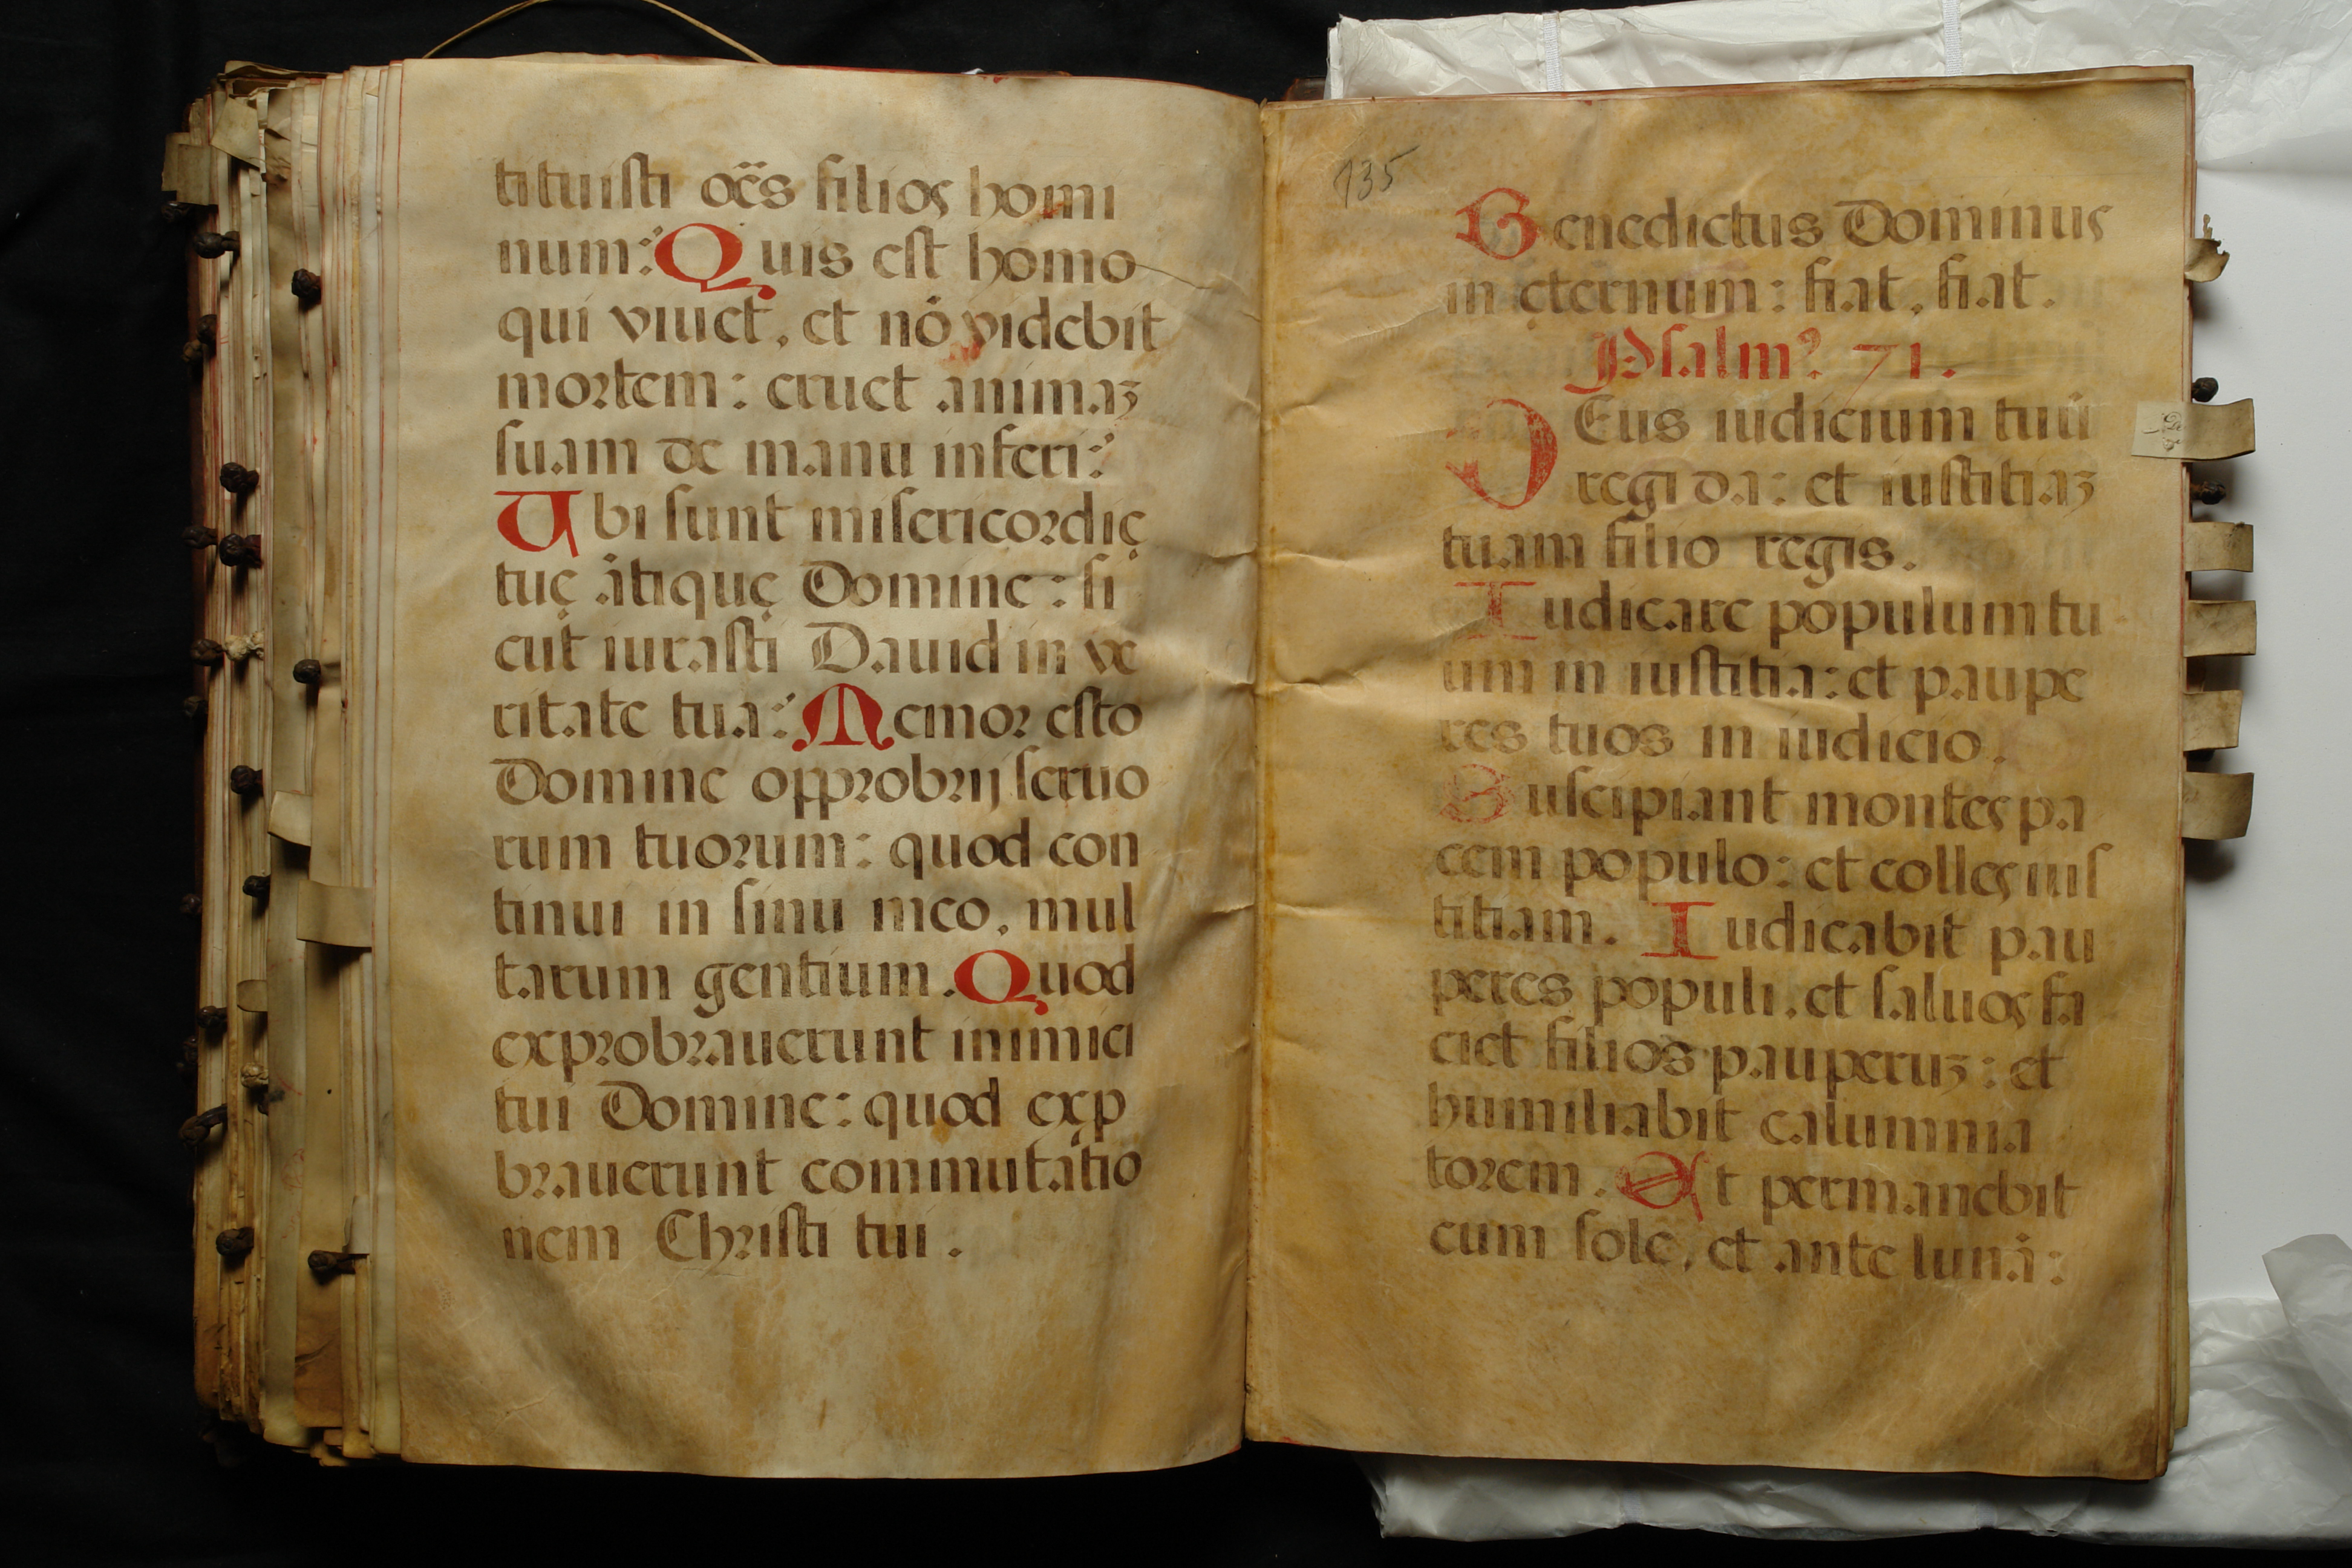 tituisti oc̃s filios homi
num: Quis est homo
qui viuet, et nõ videbit
mortem: eruet animaʒ
suam de manu inferi:
Ubi sunt misericordię
tuę ãtiquę Domine: si
cut iurasti Dauid in ve
ritate tua: Memor esto
Domine opprobrij seruo
rum tuorum: quod con
tinui in sinu meo, mul
tarum gentium. Quod
exprobrauerunt inimici
tui Domine: quod exp
brauerunt commutatio
nem Christi tui.
135
Benedictus Dominus
in ęternum: fiat, fiat.
Psalmꝰ 71.
DEus iudicium tuũ
regi da: et iustitiaʒ
tuam filio regis.
Iudicare populum tu
um in iustitia: et paupe
res tuos in iudicio.
Suscipiant montes pa
cem populo: et colles ius
titiam. Iudicabit pau
peres populi, et saluos fa
ciet filios pauperuʒ: et
humiliabit calumnia
torem. Et permanebit
cum sole, et ante lunã: